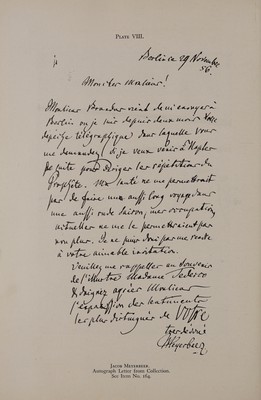 PLATE VIII.
Berlin ce 29 Novembre
56.
Monsieur!
Monsieur Brandus vient de m'envoyer à
Berlin où je suis depuis deux mois votre
depêche télégraphique dans laquelle vous
me demandez si je veux venir à Naples
de suite pour diriger les répétitions du
Prophète. Ma santé ne me permettrait
pas de faire un aussi long voyage dans
une aussi rude saison, mes occupations
actuelles ne me le permettraient pas
non plus. Je ne puis donc pas me rendre
à votre aimable invitation.
Veuillez me rappeller au souvenir
de l'illustre Madame Tedesco
& daignez agréer Monsieur
l'expression des sentiments
les plus distingués de Votre
très dévoué
Meyerbeer
JACOB MEYERBEER.
Autograph Letter from Collection.
See Item No. 264.